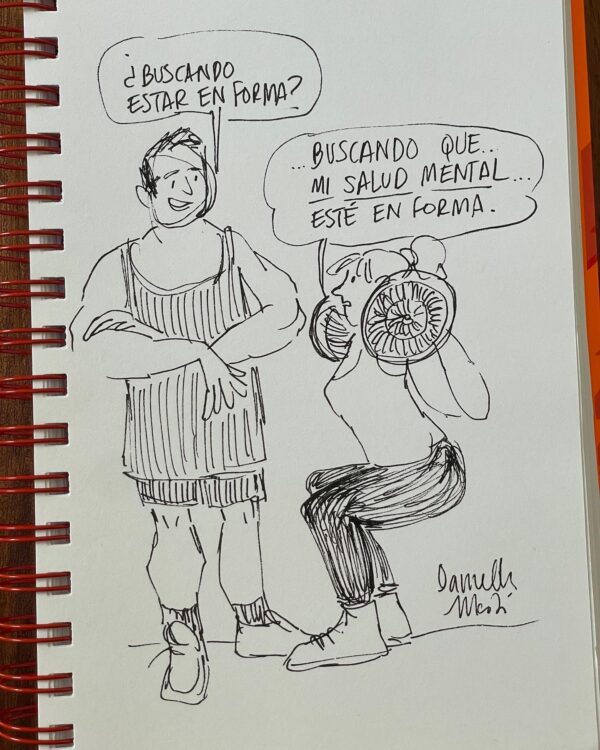 ¿BUSCANDO
ESTAR EN FORMA?
...BUSCANDO QUE...
MI SALUD MENTAL...
ESTÉ EN FORMA.